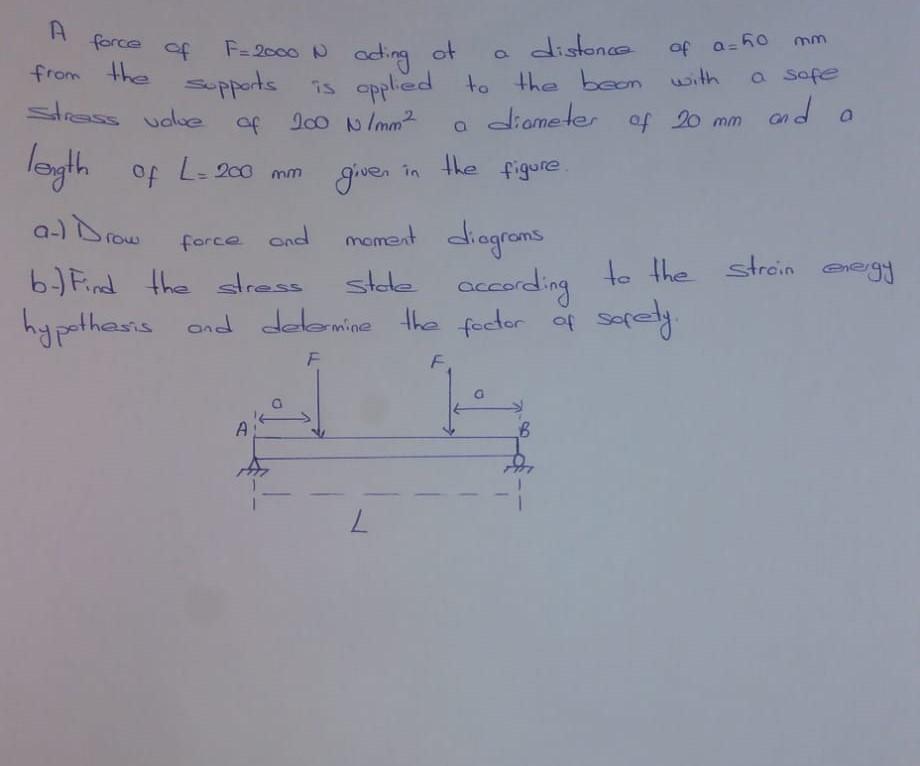 A force of F=2000 N acting at a distance of a=50 mm
from the supports is applied to the beam with a safe
stress value of 200 N/mm² a diameter of 20 mm and a
length of L=200 mm given in the figure.
a-) Draw force and moment diagrams
b-) Find the stress state according to the strain energy
hypothesis and determine the factor of safety.
F F
a a
A B
L